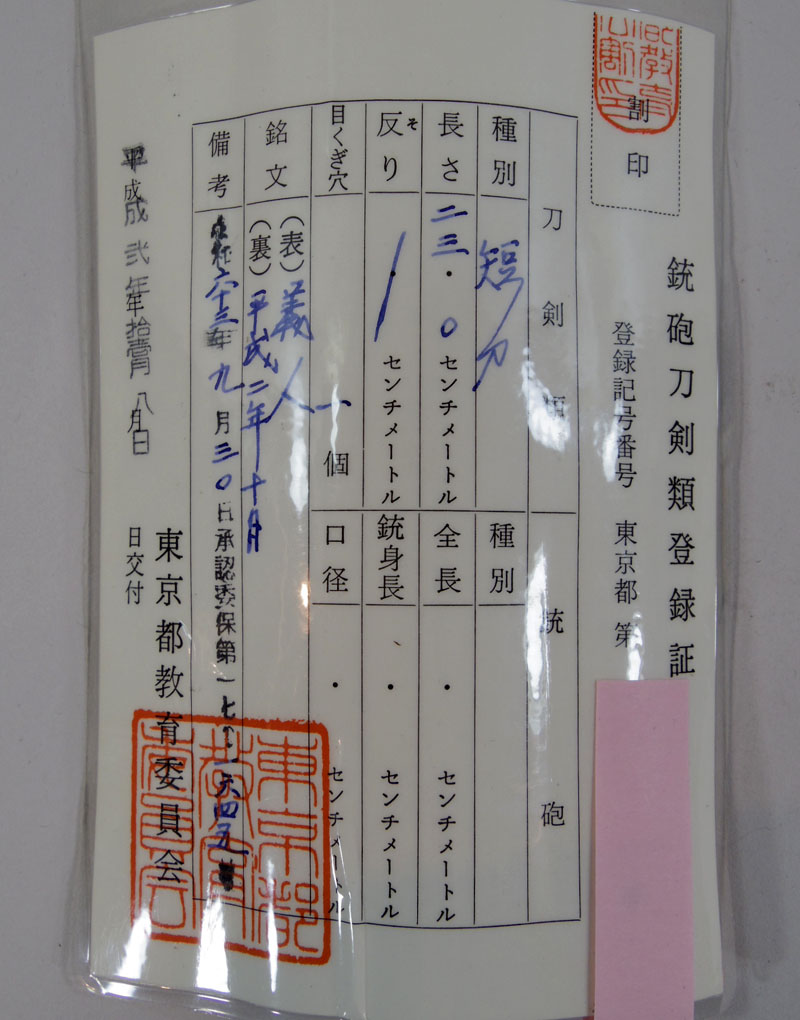 割印
銃砲刀剣類登録証
登録記号番号 東京都 第
刀剣類
種別 短刀
長さ 二三・〇 センチメートル
反り そ ・ センチメートル
目くぎ穴 一個
銘文 (表) 義人
(裏) 平成二年十月
備考 六十三年九月三〇日承認委保第一七
六四五号
銃砲
種別
全長 ・ センチメートル
銃身長 ・ センチメートル
口径 ・ センチメートル
平成弐年拾壹月八日
日交付
東京都教育委員会
東京都教育委員会